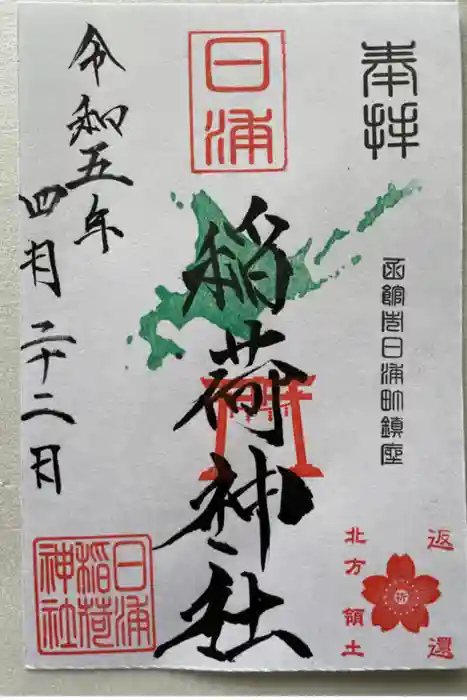 奉拝
函館市日浦町鎮座
返還
祈
北方領土
日浦
稲荷神社
令和五年
四月二十二日
日浦
稲荷
神社